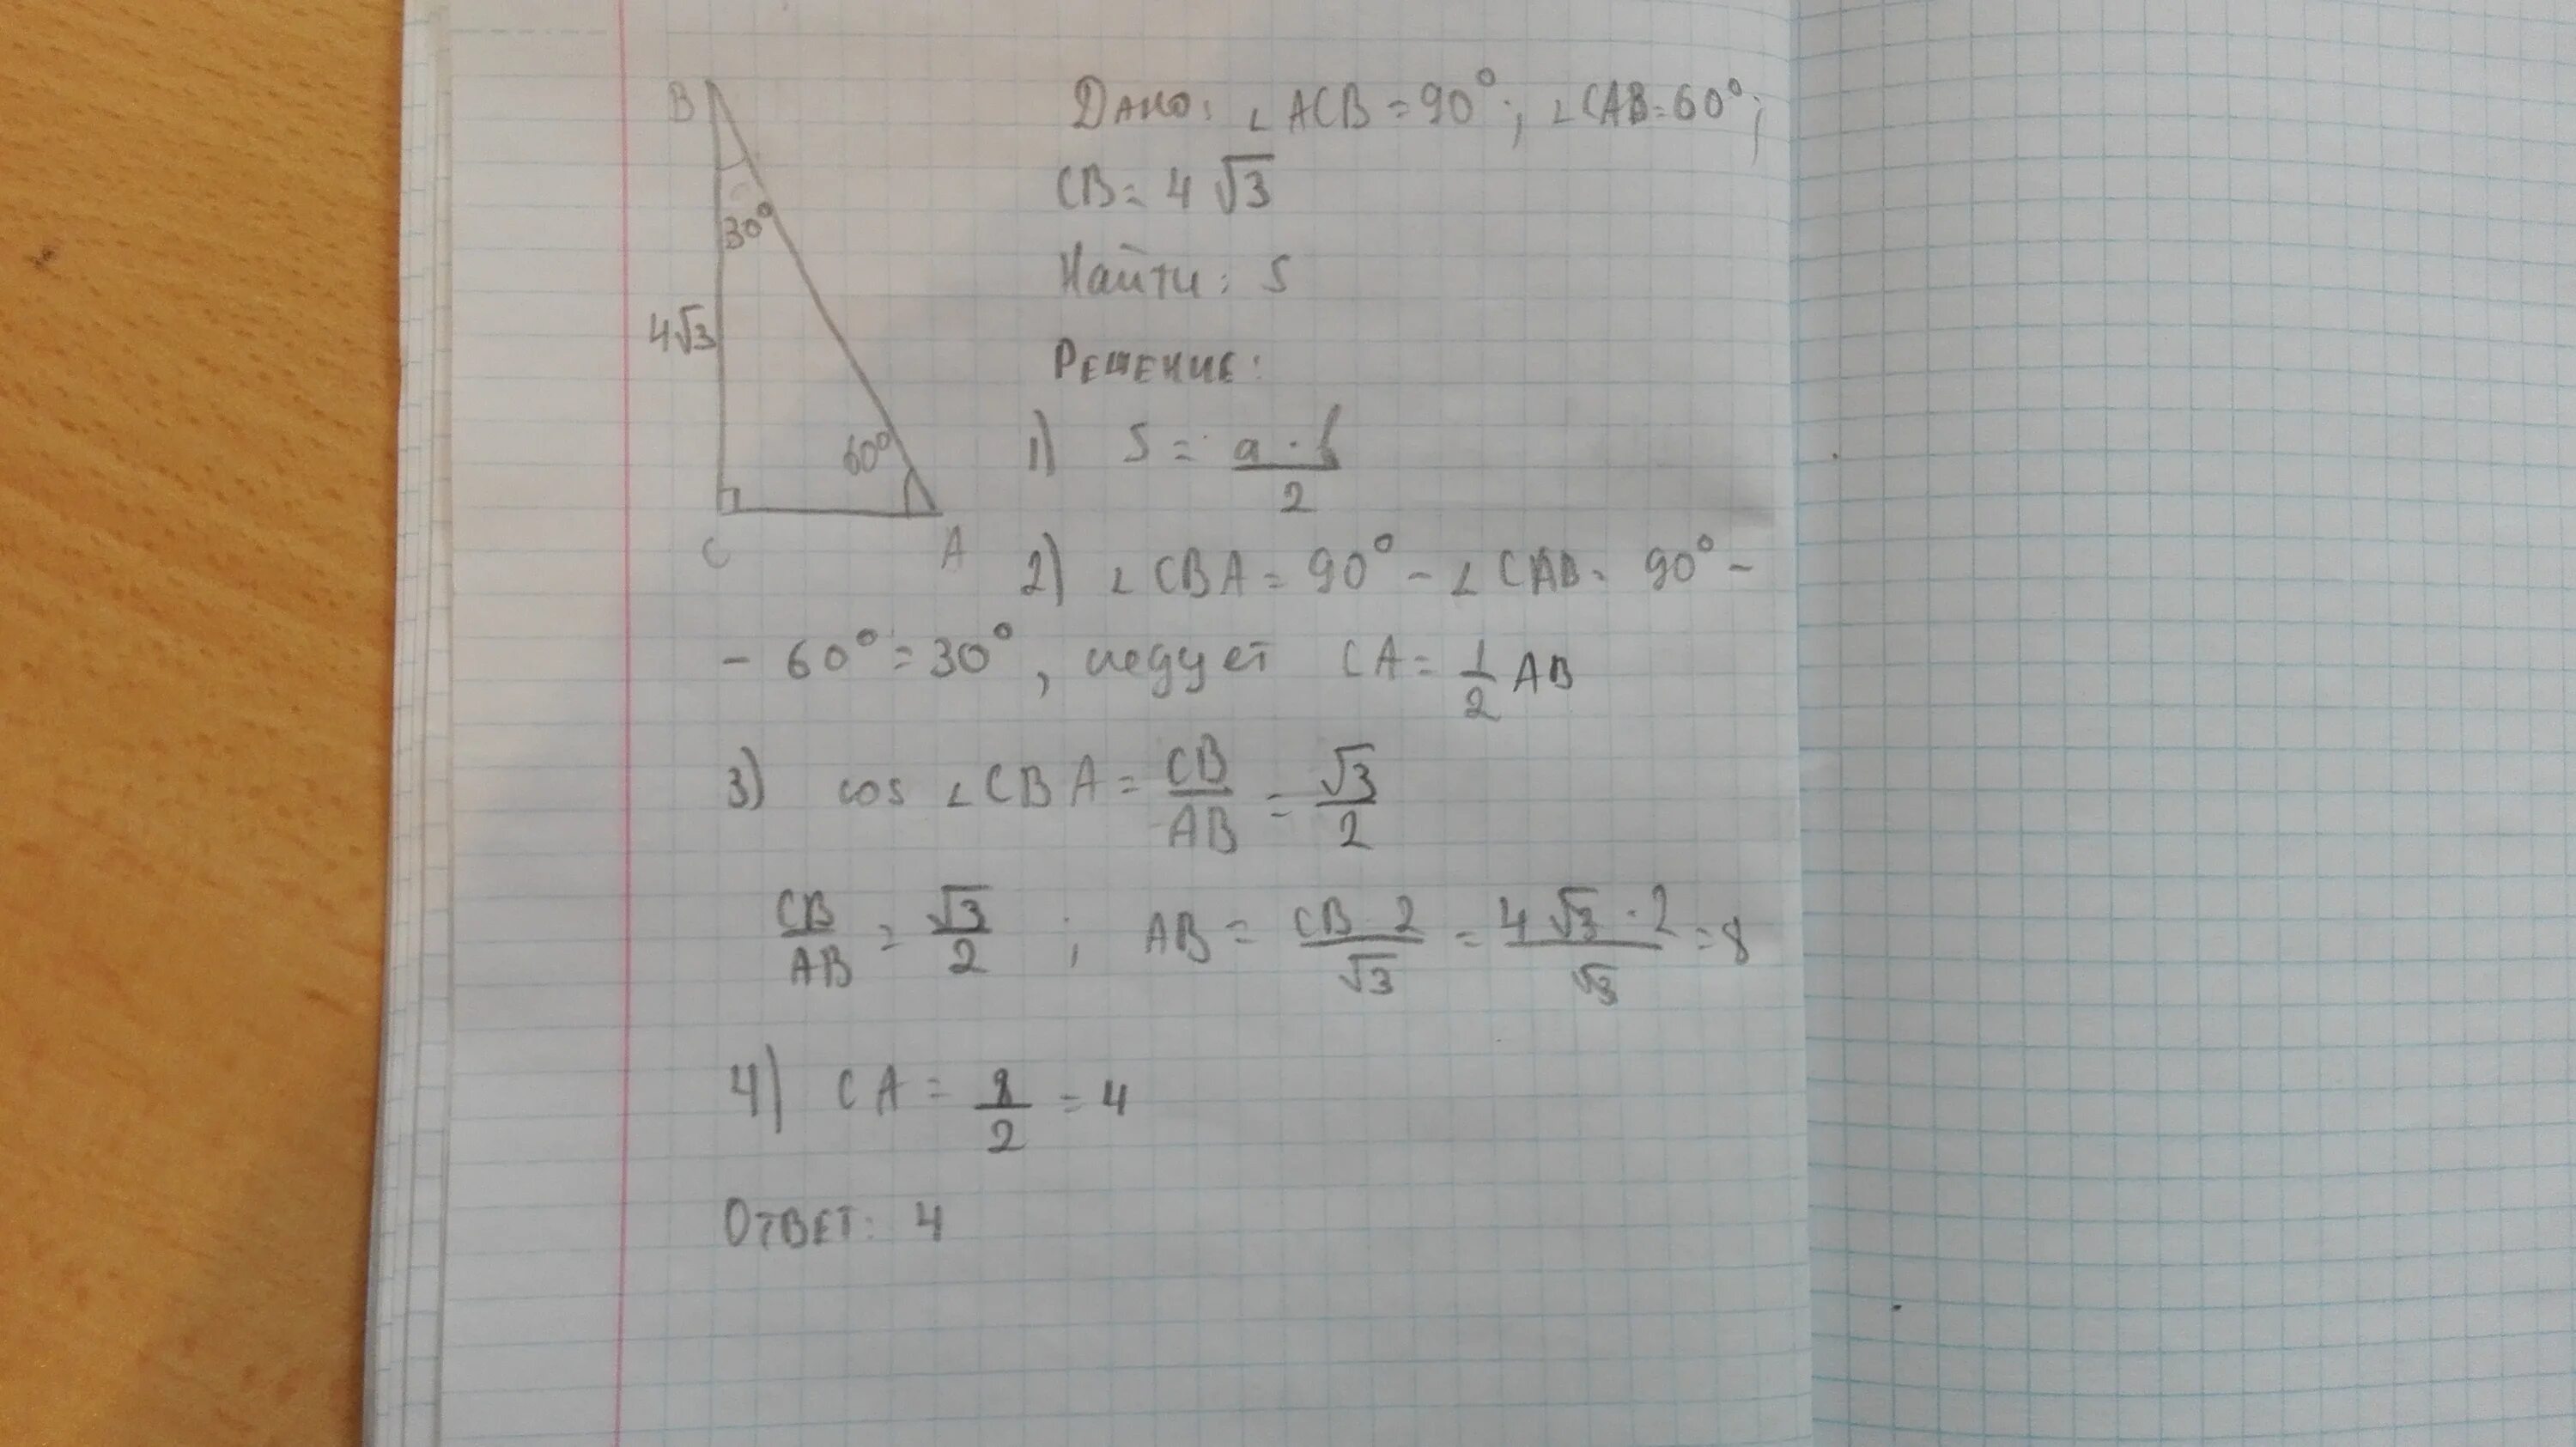 B
30°
4√3
60°
C
A
Дано: ∠ACB = 90°; ∠CAB = 60°;
CB = 4√3
Найти: S
Решение:
1) S = a · b / 2
2) ∠CBA = 90° - ∠CAB = 90° -
- 60° = 30°, следует CA = 1/2 AB
3) cos ∠CBA = CB/AB = √3/2
CB/AB = √3/2 ; AB = CB 2/√3 = 4√3 · 2/√3 = 8
4) CA = 8/2 = 4
Ответ: 4